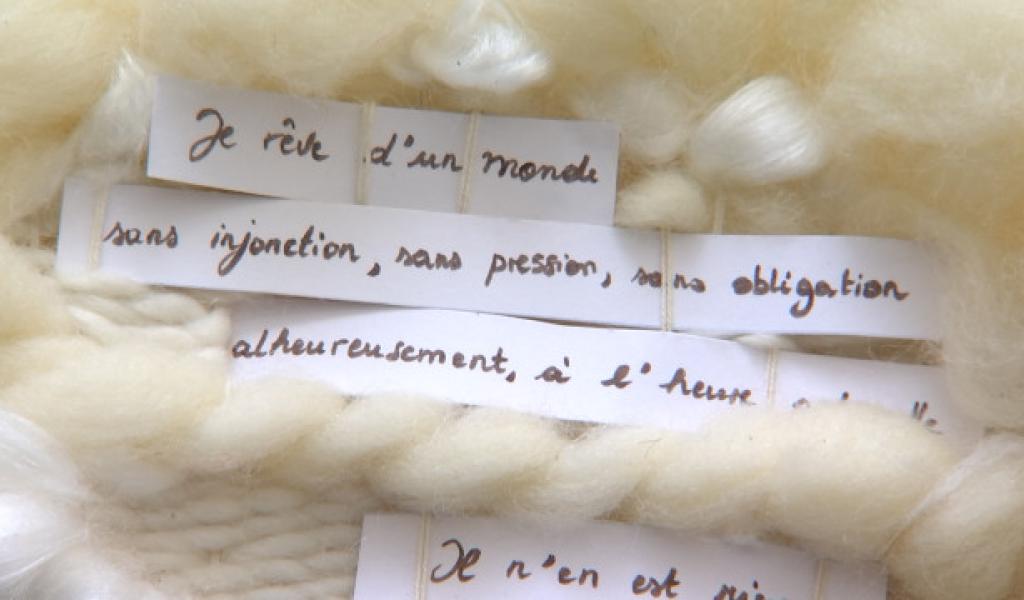 Je rêve d'un monde
sans injonction, sans pression, sans obligation
alheureusement, à l'heure
Il n'en est